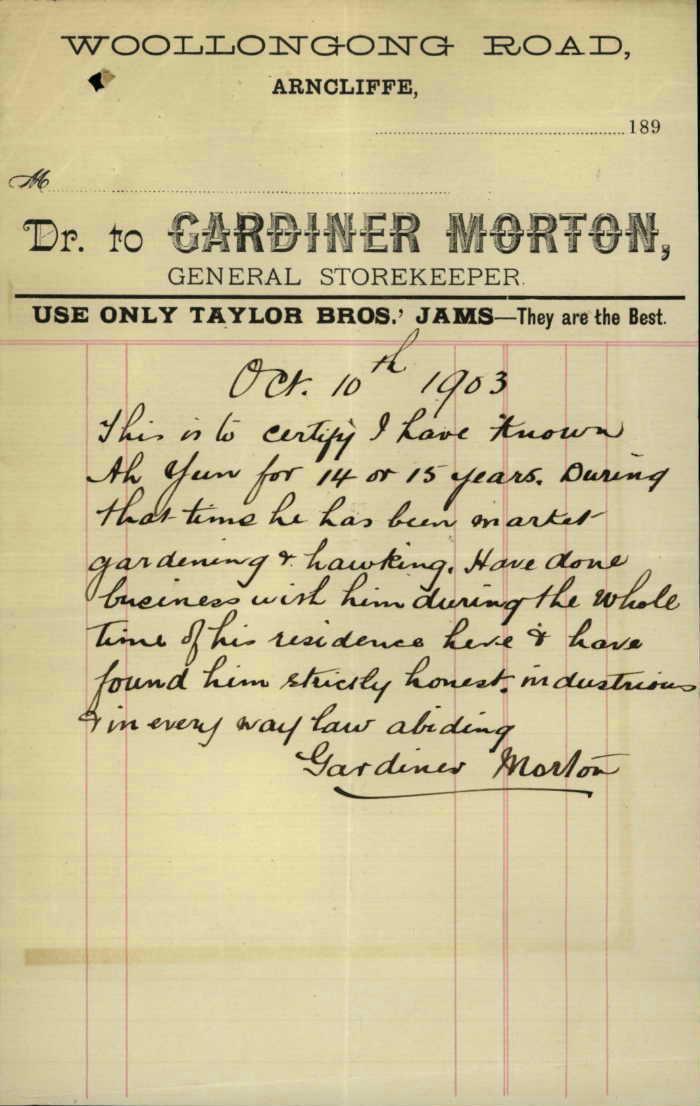 WOOLLONGONG ROAD,
ARNCLIFFE,
189
M
Dr. to GARDINER MORTON,
GENERAL STOREKEEPER.
USE ONLY TAYLOR BROS.' JAMS—They are the Best.
Oct. 10th 1903
This is to certify I have Known
Ah Yun for 14 or 15 years. During
that time he has been market
gardening & hawking. Have done
business with him during the whole
time of his residence here & have
found him strictly honest, industrious
& in every way law abiding
Gardiner Morton